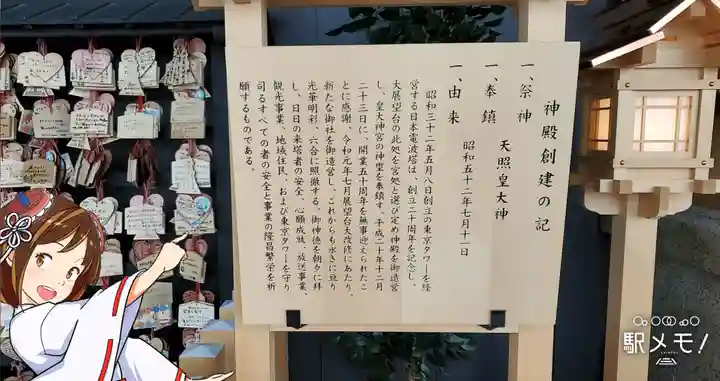 神殿創建の記
一、祭神
天照皇大神
一、奉鎮
昭和五十二年七月十一日
一、由来
昭和三十二年五月八日創立の東京タワーを経
営する日本電波塔は、創立二十周年を記念し、
大展望台の此処を宮処と選び定め神殿を御造営
し、皇大神宮の神璽を奉鎮す。平成二十年十二月
二十三日に、開業五十周年を無事迎えられたこ
とに感謝、令和元年七月展望台大改修にあたり、
新たな御社を御造営し、これからも永きに亘り
光華明彩、六合に照徹する、御神徳を朝夕に拝
し、日日の来塔者の安全、心願成就、放送事業、
観光事業、地域住民、および東京タワーを守り
司るすべての者の安全と事業の隆昌繁栄を祈
願するものである。
駅メモ!